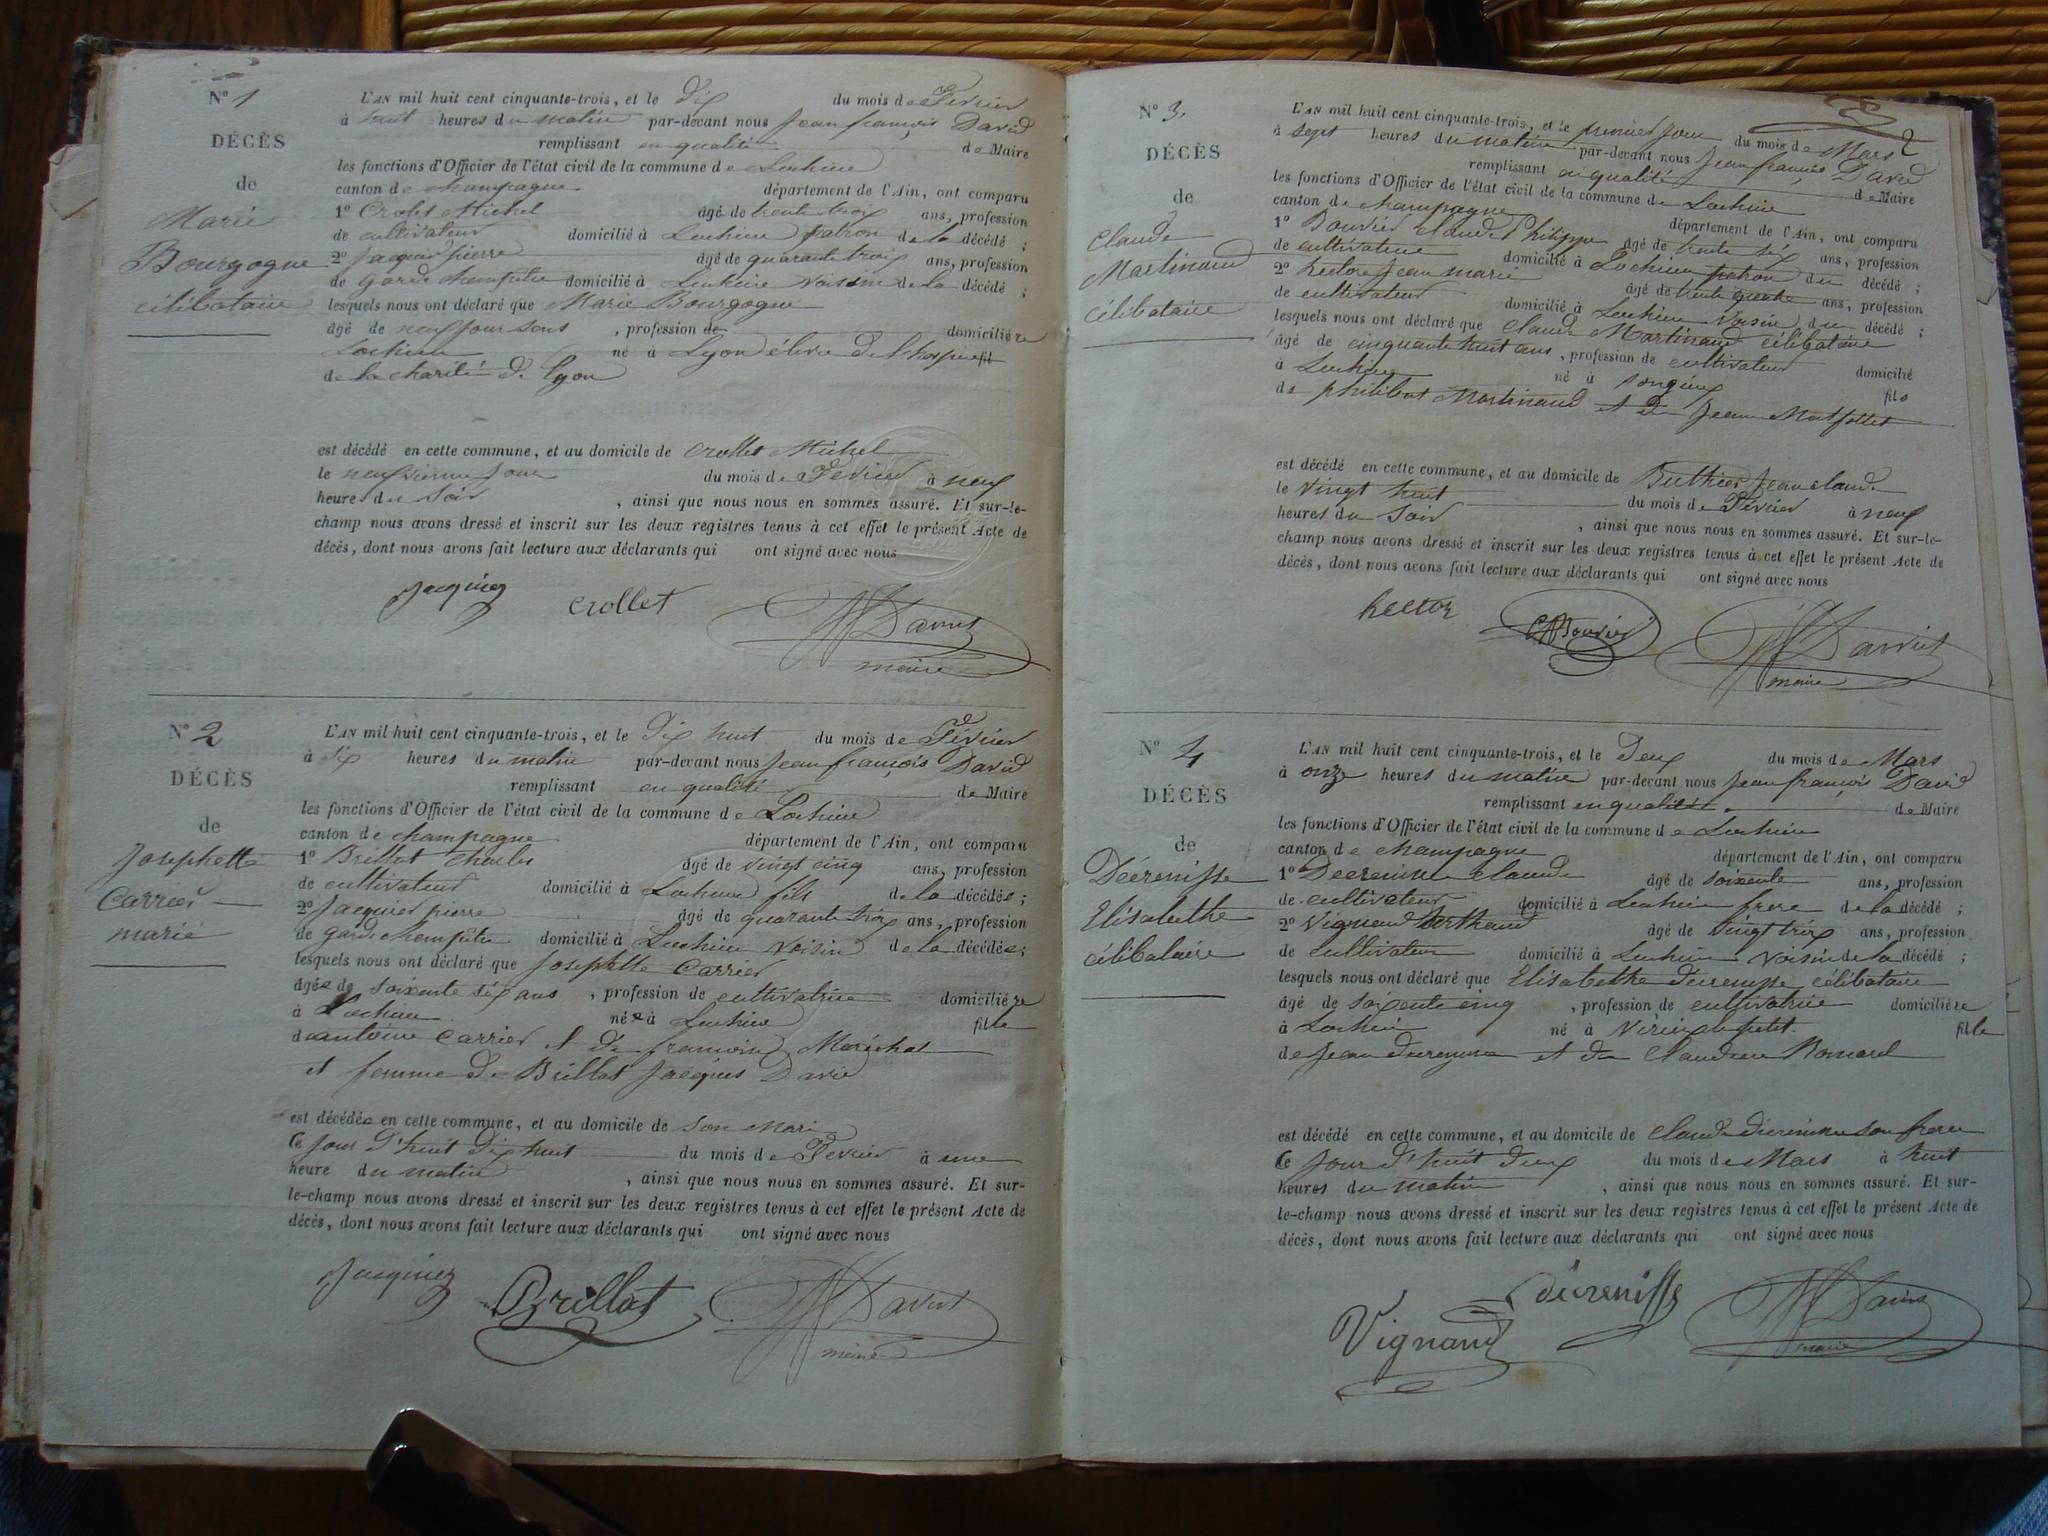 N° 1
DÉCÈS
de
Marie
Bourgogne
célibataire
L'AN mil huit cent cinquante-trois, et le dix du mois de Février
à huit heures du matin par-devant nous Jean françois David
remplissant en qualité de Maire
les fonctions d'Officier de l'état civil de la commune de Lochieu
canton de champagne département de l'Ain, ont comparu
1° Crolet Michel âgé de trente trois ans, profession
de cultivateur domicilié à Lochieu patron de la décédé ;
2° Jaquier pierre âgé de quarante trois ans, profession
de garde champêtre domicilié à Lochieu Voisin de la décédé ;
lesquels nous ont déclaré que Marie Bourgogne
âgé de neuf jours , profession de domicilière
Lochieu né à Lyon élève de l'hospice fil
de la charité de Lyon
est décédé en cette commune, et au domicile de Crollet Michel
le neuvième jour du mois de Février à neuf
heure du Soir , ainsi que nous nous en sommes assuré. Et sur-le-
champ nous avons dressé et inscrit sur les deux registres tenus à cet effet le présent Acte de
décès, dont nous avons fait lecture aux déclarants qui ont signé avec nous
Jaquier crollet David
maire
N° 2
DÉCÈS
de
Josephette
Carrier
marié
L'AN mil huit cent cinquante-trois, et le dix huit du mois de Février
à dix heures du matin par-devant nous Jean françois David
remplissant en qualité de Maire
les fonctions d'Officier de l'état civil de la commune de Lochieu
canton de champagne département de l'Ain, ont comparu
1° Brillat Charles âgé de vingt cinq ans, profession
de cultivateur domicilié à Lochieu fils de la décédée ;
2° Jacquier pierre âgé de quarante trois ans, profession
de garde champêtre domicilié à Lochieu Voisin de la décédée ;
lesquels nous ont déclaré que Josephette Carrier
âgée de soixante dix ans , profession de cultivatrice domicilière
à Lochieu née à Lochieu fille
d antoine Carrier et de françoise Maréchal
et femme de Brillat Jacques David
est décédée en cette commune, et au domicile de son Mari
Ce jour d'huit dix huit du mois de Février à une
heure du matin , ainsi que nous nous en sommes assuré. Et sur-
le-champ nous avons dressé et inscrit sur les deux registres tenus à cet effet le présent Acte de
décès, dont nous avons fait lecture aux déclarants qui ont signé avec nous
Jaquier Brillat David
maire
2
N° 3.
DÉCÈS
de
Claude
Martinand
célibataire
L'AN mil huit cent cinquante-trois, et le premier jour du mois de Mars
à sept heures du matin par-devant nous Jean françois David
remplissant en qualité de Maire
les fonctions d'Officier de l'état civil de la commune de Lochieu
canton de champagne département de l'Ain, ont comparu
1° Bouvier claude Philippe âgé de trente six ans, profession
de cultivateur domicilié à Lochieu patron du décédé ;
2° hector Jean marie âgé de trente quatre ans, profession
de cultivateur domicilié à Lochieu Voisin du décédé ;
lesquels nous ont déclaré que Claude Martinand célibataire
âgé de cinquante huit ans , profession de cultivateur domicilié
à Lochieu né à Songieu fils
de philibert Martinand et de Jeanne Montfollet
est décédé en cette commune, et au domicile de Buthier Jean claude
le Vingt huit du mois de Février à neuf
heures du Soir , ainsi que nous nous en sommes assuré. Et sur-le-
champ nous avons dressé et inscrit sur les deux registres tenus à cet effet le présent Acte de
décès, dont nous avons fait lecture aux déclarants qui ont signé avec nous
hector Bouvier David
maire
N° 4
DÉCÈS
de
Décrenisse
Elisabethe
célibataire
L'AN mil huit cent cinquante-trois, et le Deux du mois de Mars
à onze heures du matin par-devant nous Jean françois David
remplissant en qualité de Maire
les fonctions d'Officier de l'état civil de la commune de Lochieu
canton de champagne département de l'Ain, ont comparu
1° Décrenisse claude âgé de soixante ans, profession
de cultivateur domicilié à Lochieu frere de la décédé ;
2° Vignand Berthand âgé de Vingt trois ans, profession
de cultivateur domicilié à Lochieu Voisin de la décédé ;
lesquels nous ont déclaré que Elisabethe décrenisse célibataire
âgé de soixante cinq , profession de cultivatrice domicilière
à Lochieu né à Virieu le petit fille
de Jean décrenisse et de Claudine Bonnard
est décédé en cette commune, et au domicile de claude décrenisse son frere
Ce Jour d'huit deux du mois de Mars à huit
heures du matin , ainsi que nous nous en sommes assuré. Et sur-
le-champ nous avons dressé et inscrit sur les deux registres tenus à cet effet le présent Acte de
décès, dont nous avons fait lecture aux déclarants qui ont signé avec nous
Vignand décrenisse David
maire